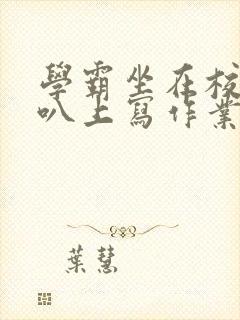 學霸坐在校
叭上寫作業
葉慧